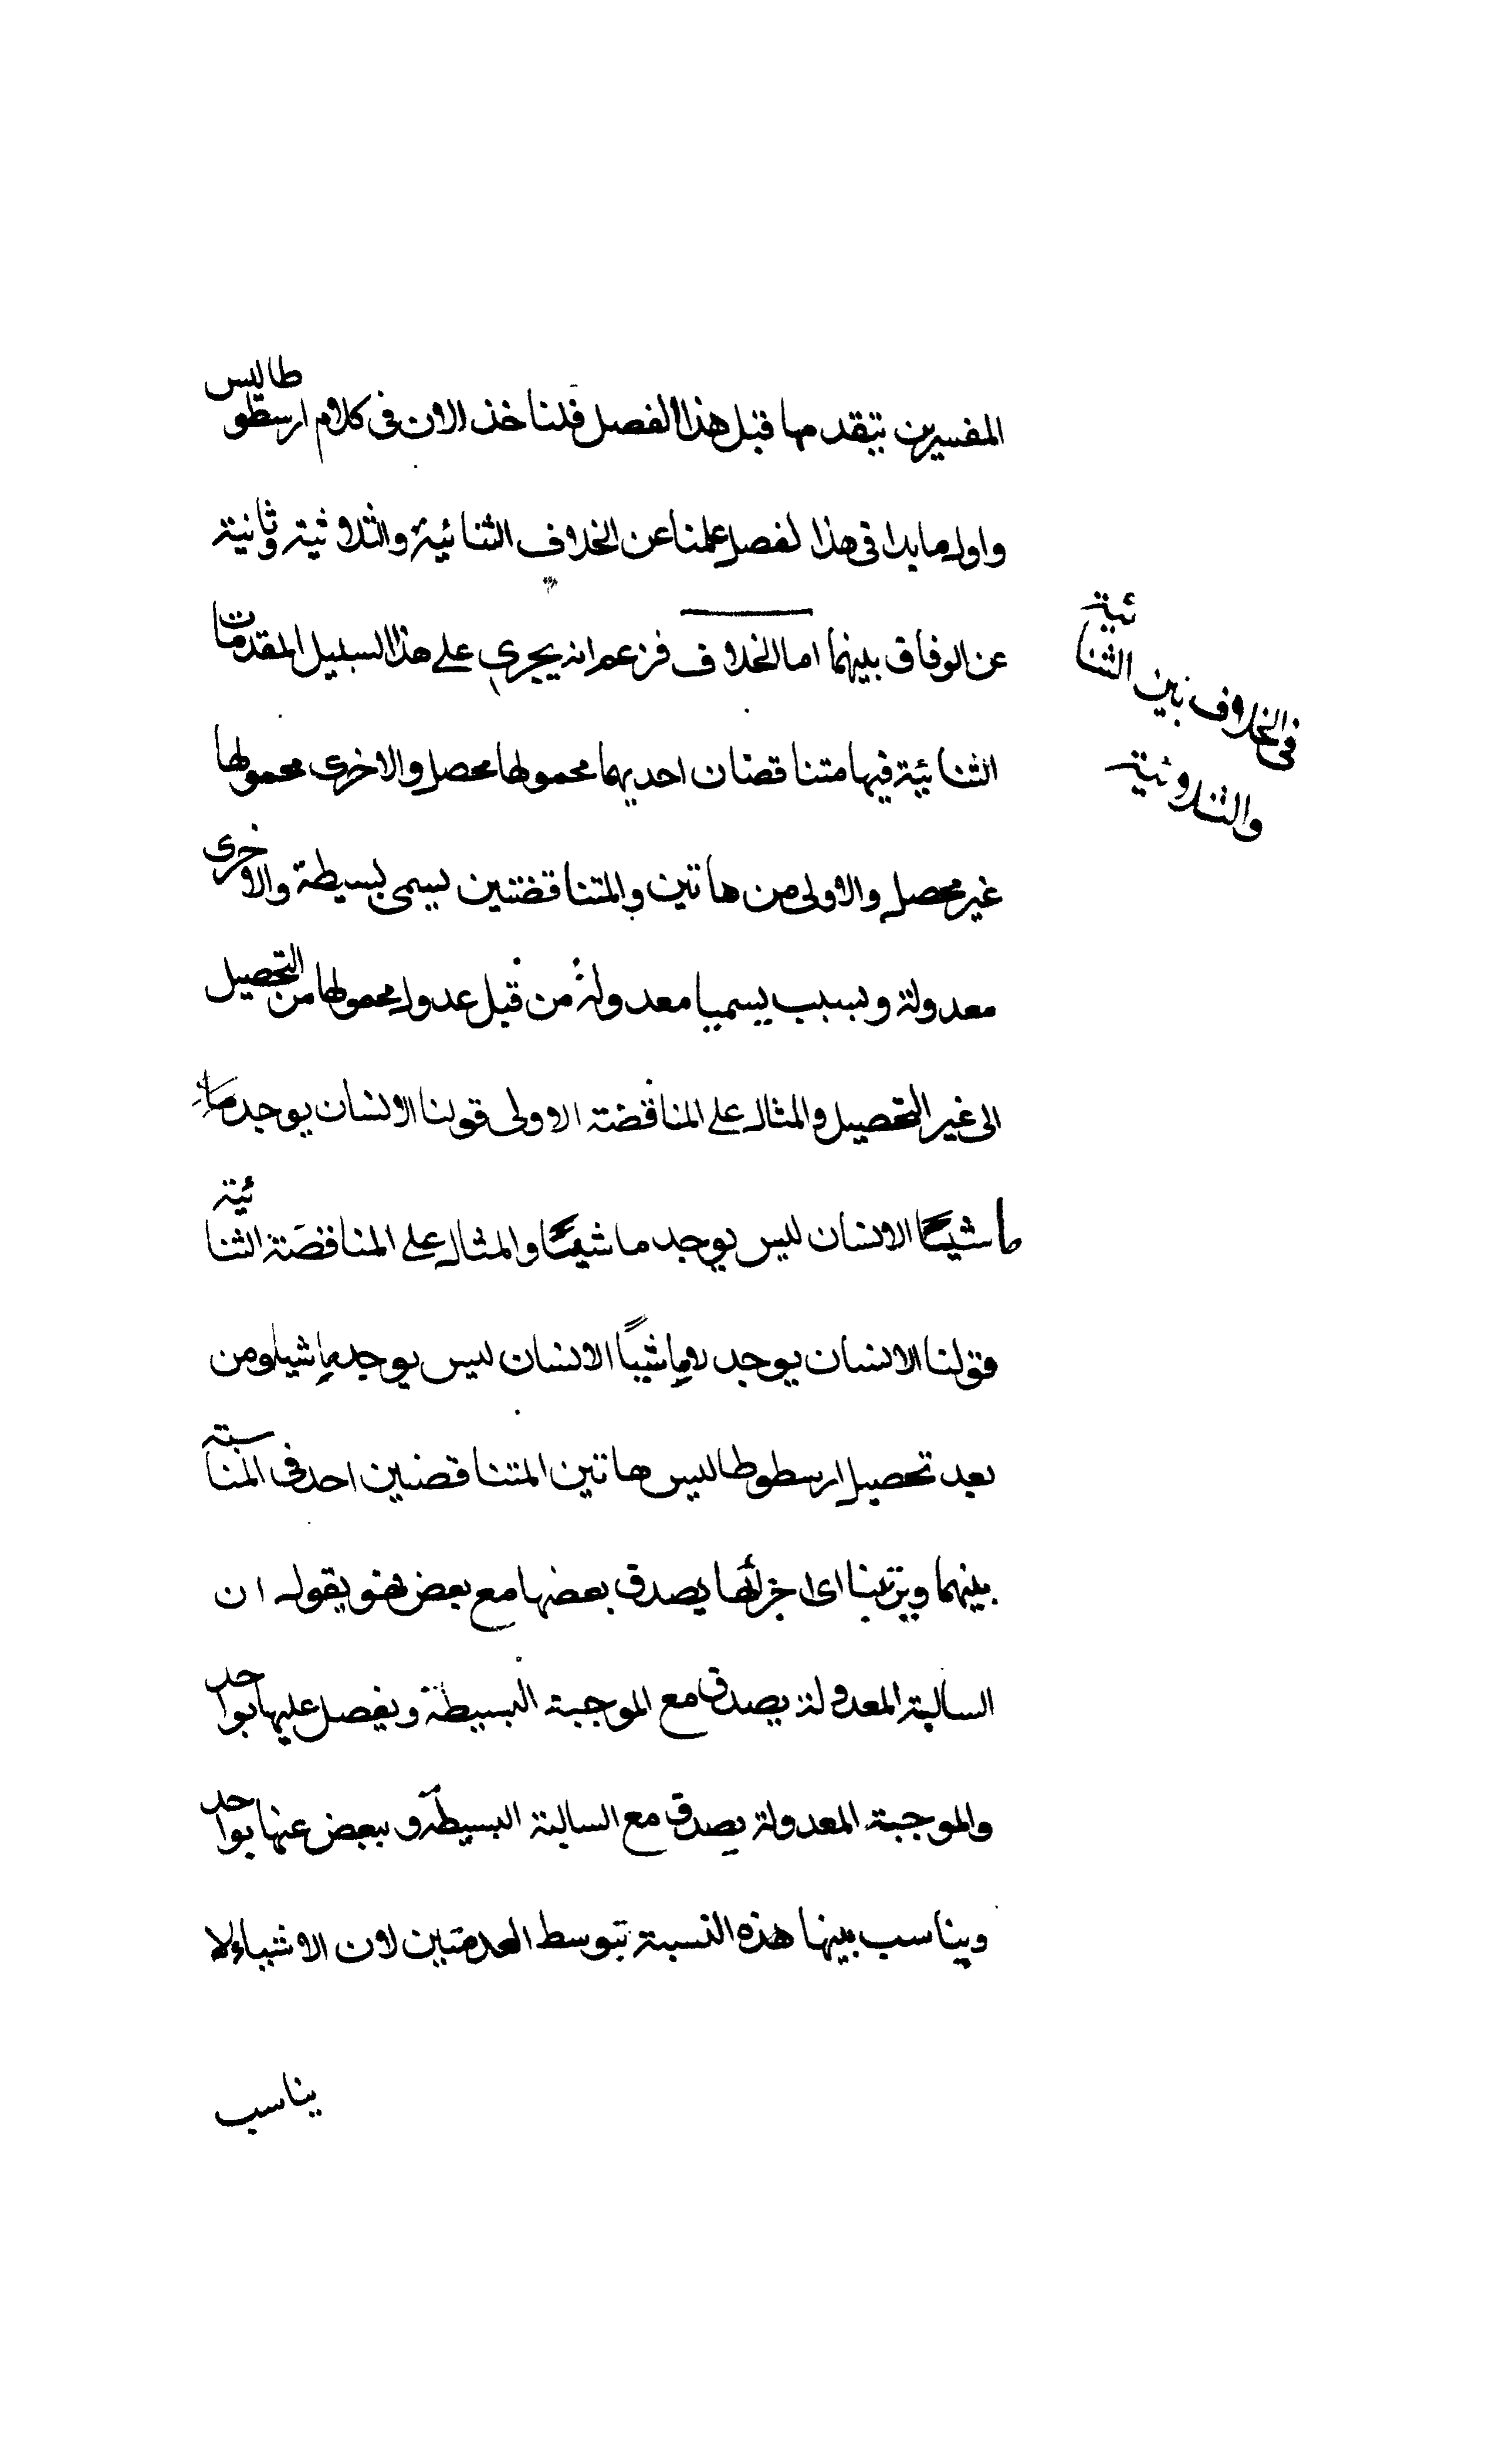 المفسيرين بتقدمها قبل هذا الفصل فلنا خذ الان فى كلام ارسطوطاليس
واول ما بدا فى هذا لفصل علمنا عن الخلاف الثنائية والثلاثية وثانية
عن الوفاق بينهما اما الخلاف فزعم انه يجرى على هذا السبيل المقدمات
فى الخلاف بين الثنائية
والثلاثية
الثنائية فيها متناقضان احديهما محمولها محصل والاخرى محمولها
غير محصل والاولى من هاتين والمتناقضتين يسمى بسيطة والاخرى
معدولة وبسبب يسميا معدولة من قبل عدول محمولها من التحصيل
الى غير التحصيل والمثال على المناقضة الاولى قولنا الانسان يوجد
ماشيئا الانسان ليس يوجد ماشيئا والمثال على المناقضة الثنائية
قولنا الانسان يوجد لا ماشيًا الانسان ليس يوجد ماشيا ومن
بعد تحصيل ارسطوطاليس هاتين المتناقضين احد فى المناسبة
بينهما ويرتبنا اى اجزائها يصدق بعضها مع بعض فهو يقول ان
السالبة المعدولة يصدق مع الموجبة البسيطة ويفصل عليها بواحد
والموجبة المعدولة يصدق مع السالبة البسيطة و ببعض عنها بواحد
ويناسب بينها هذه النسبة بتوسط العدمتين لان الاشياء لا
يناسب